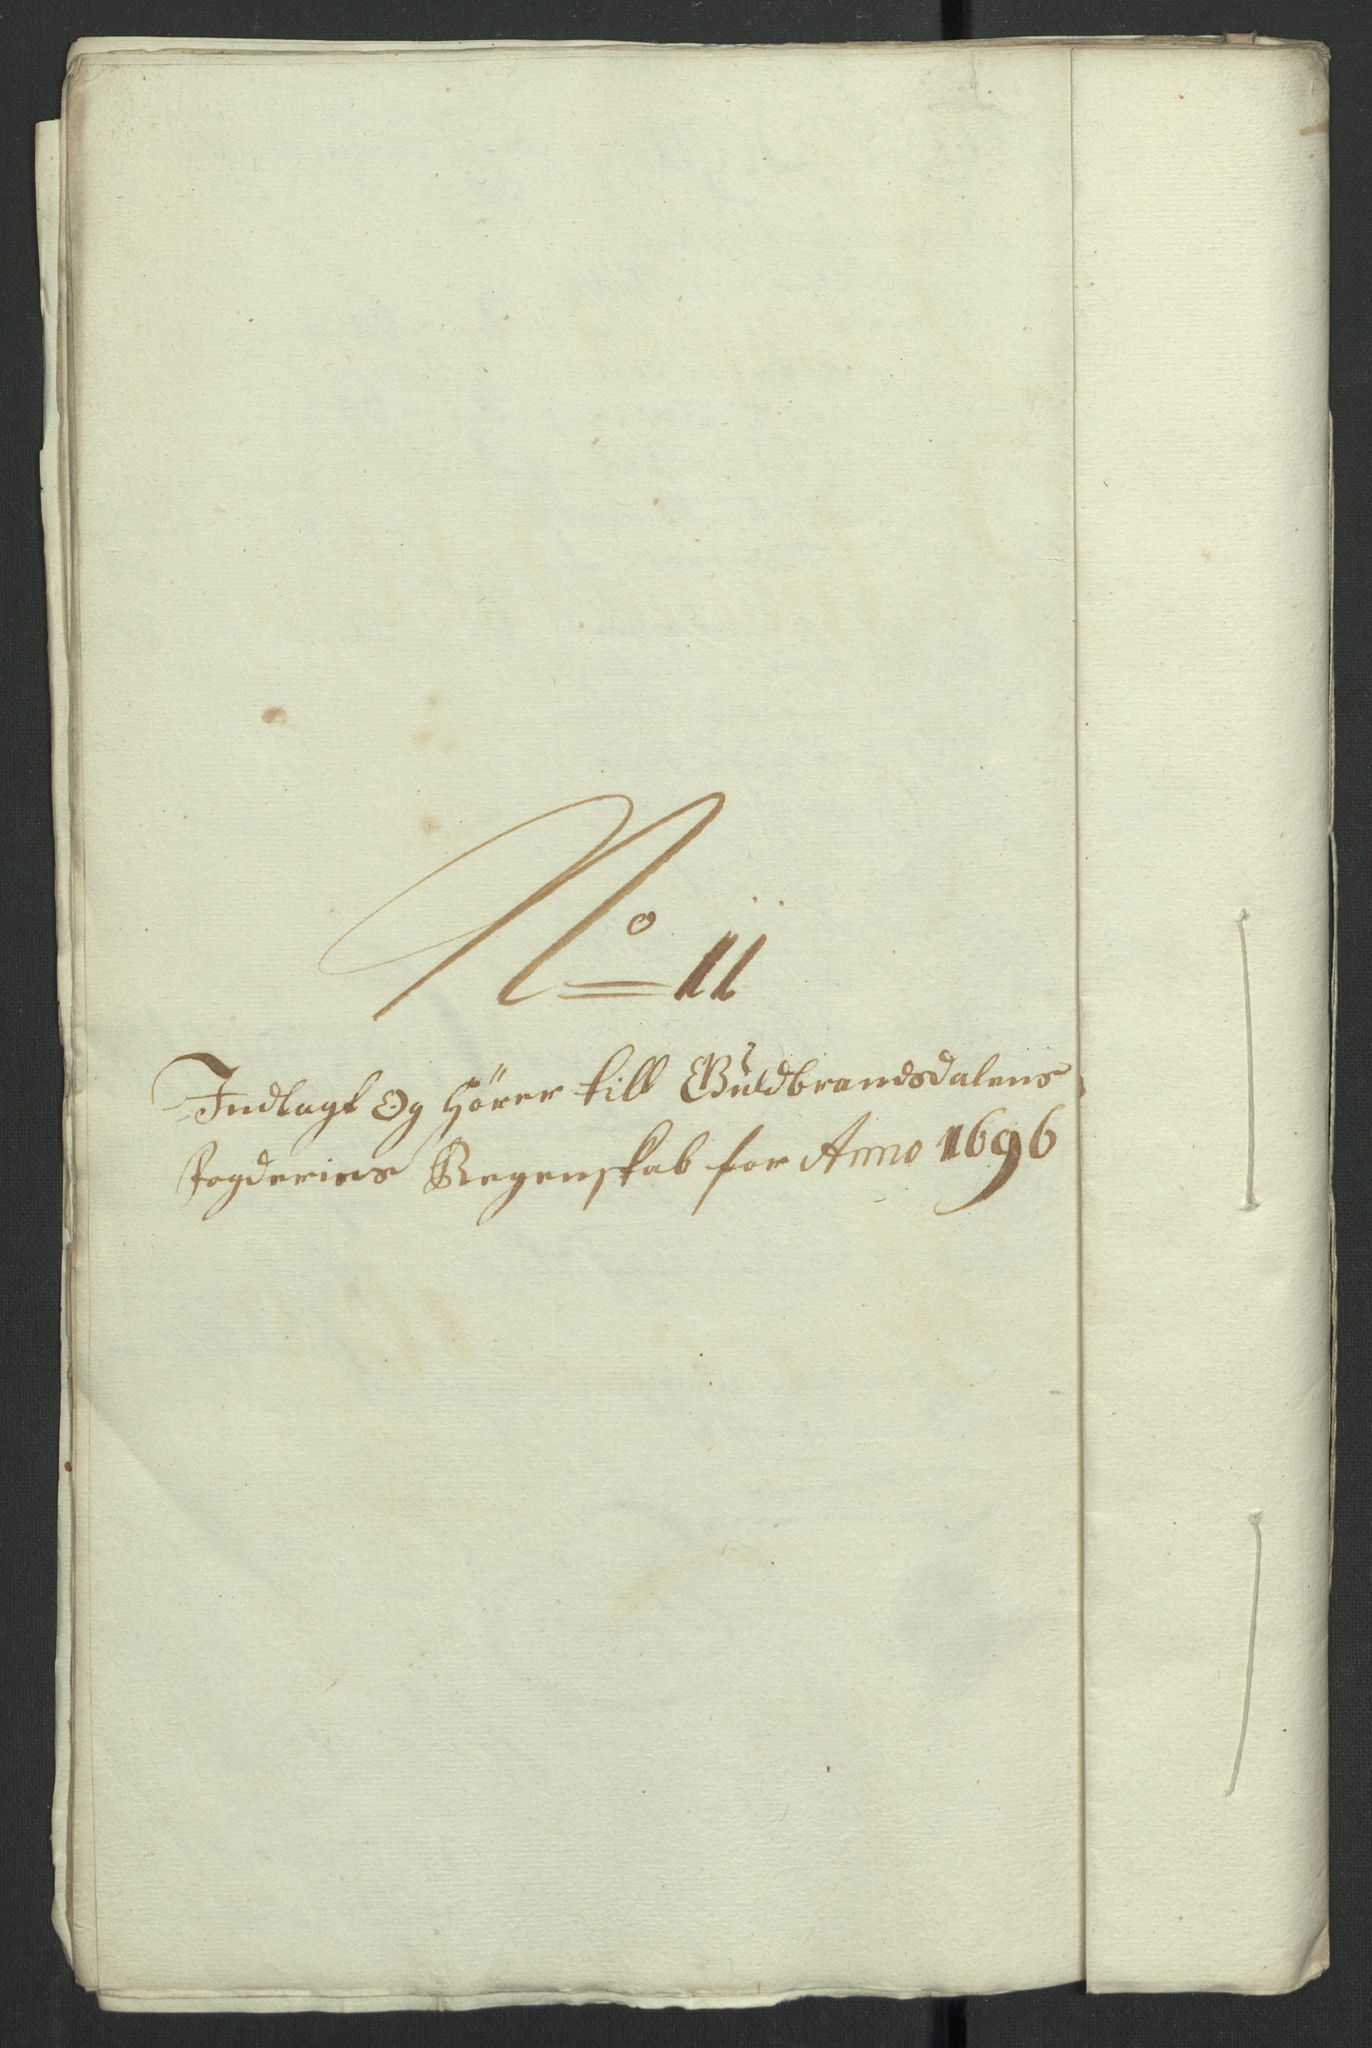 No 11
Indlagt Og hörer till Guldbrandsdalens
fogderies Regenskab for Anno 1696